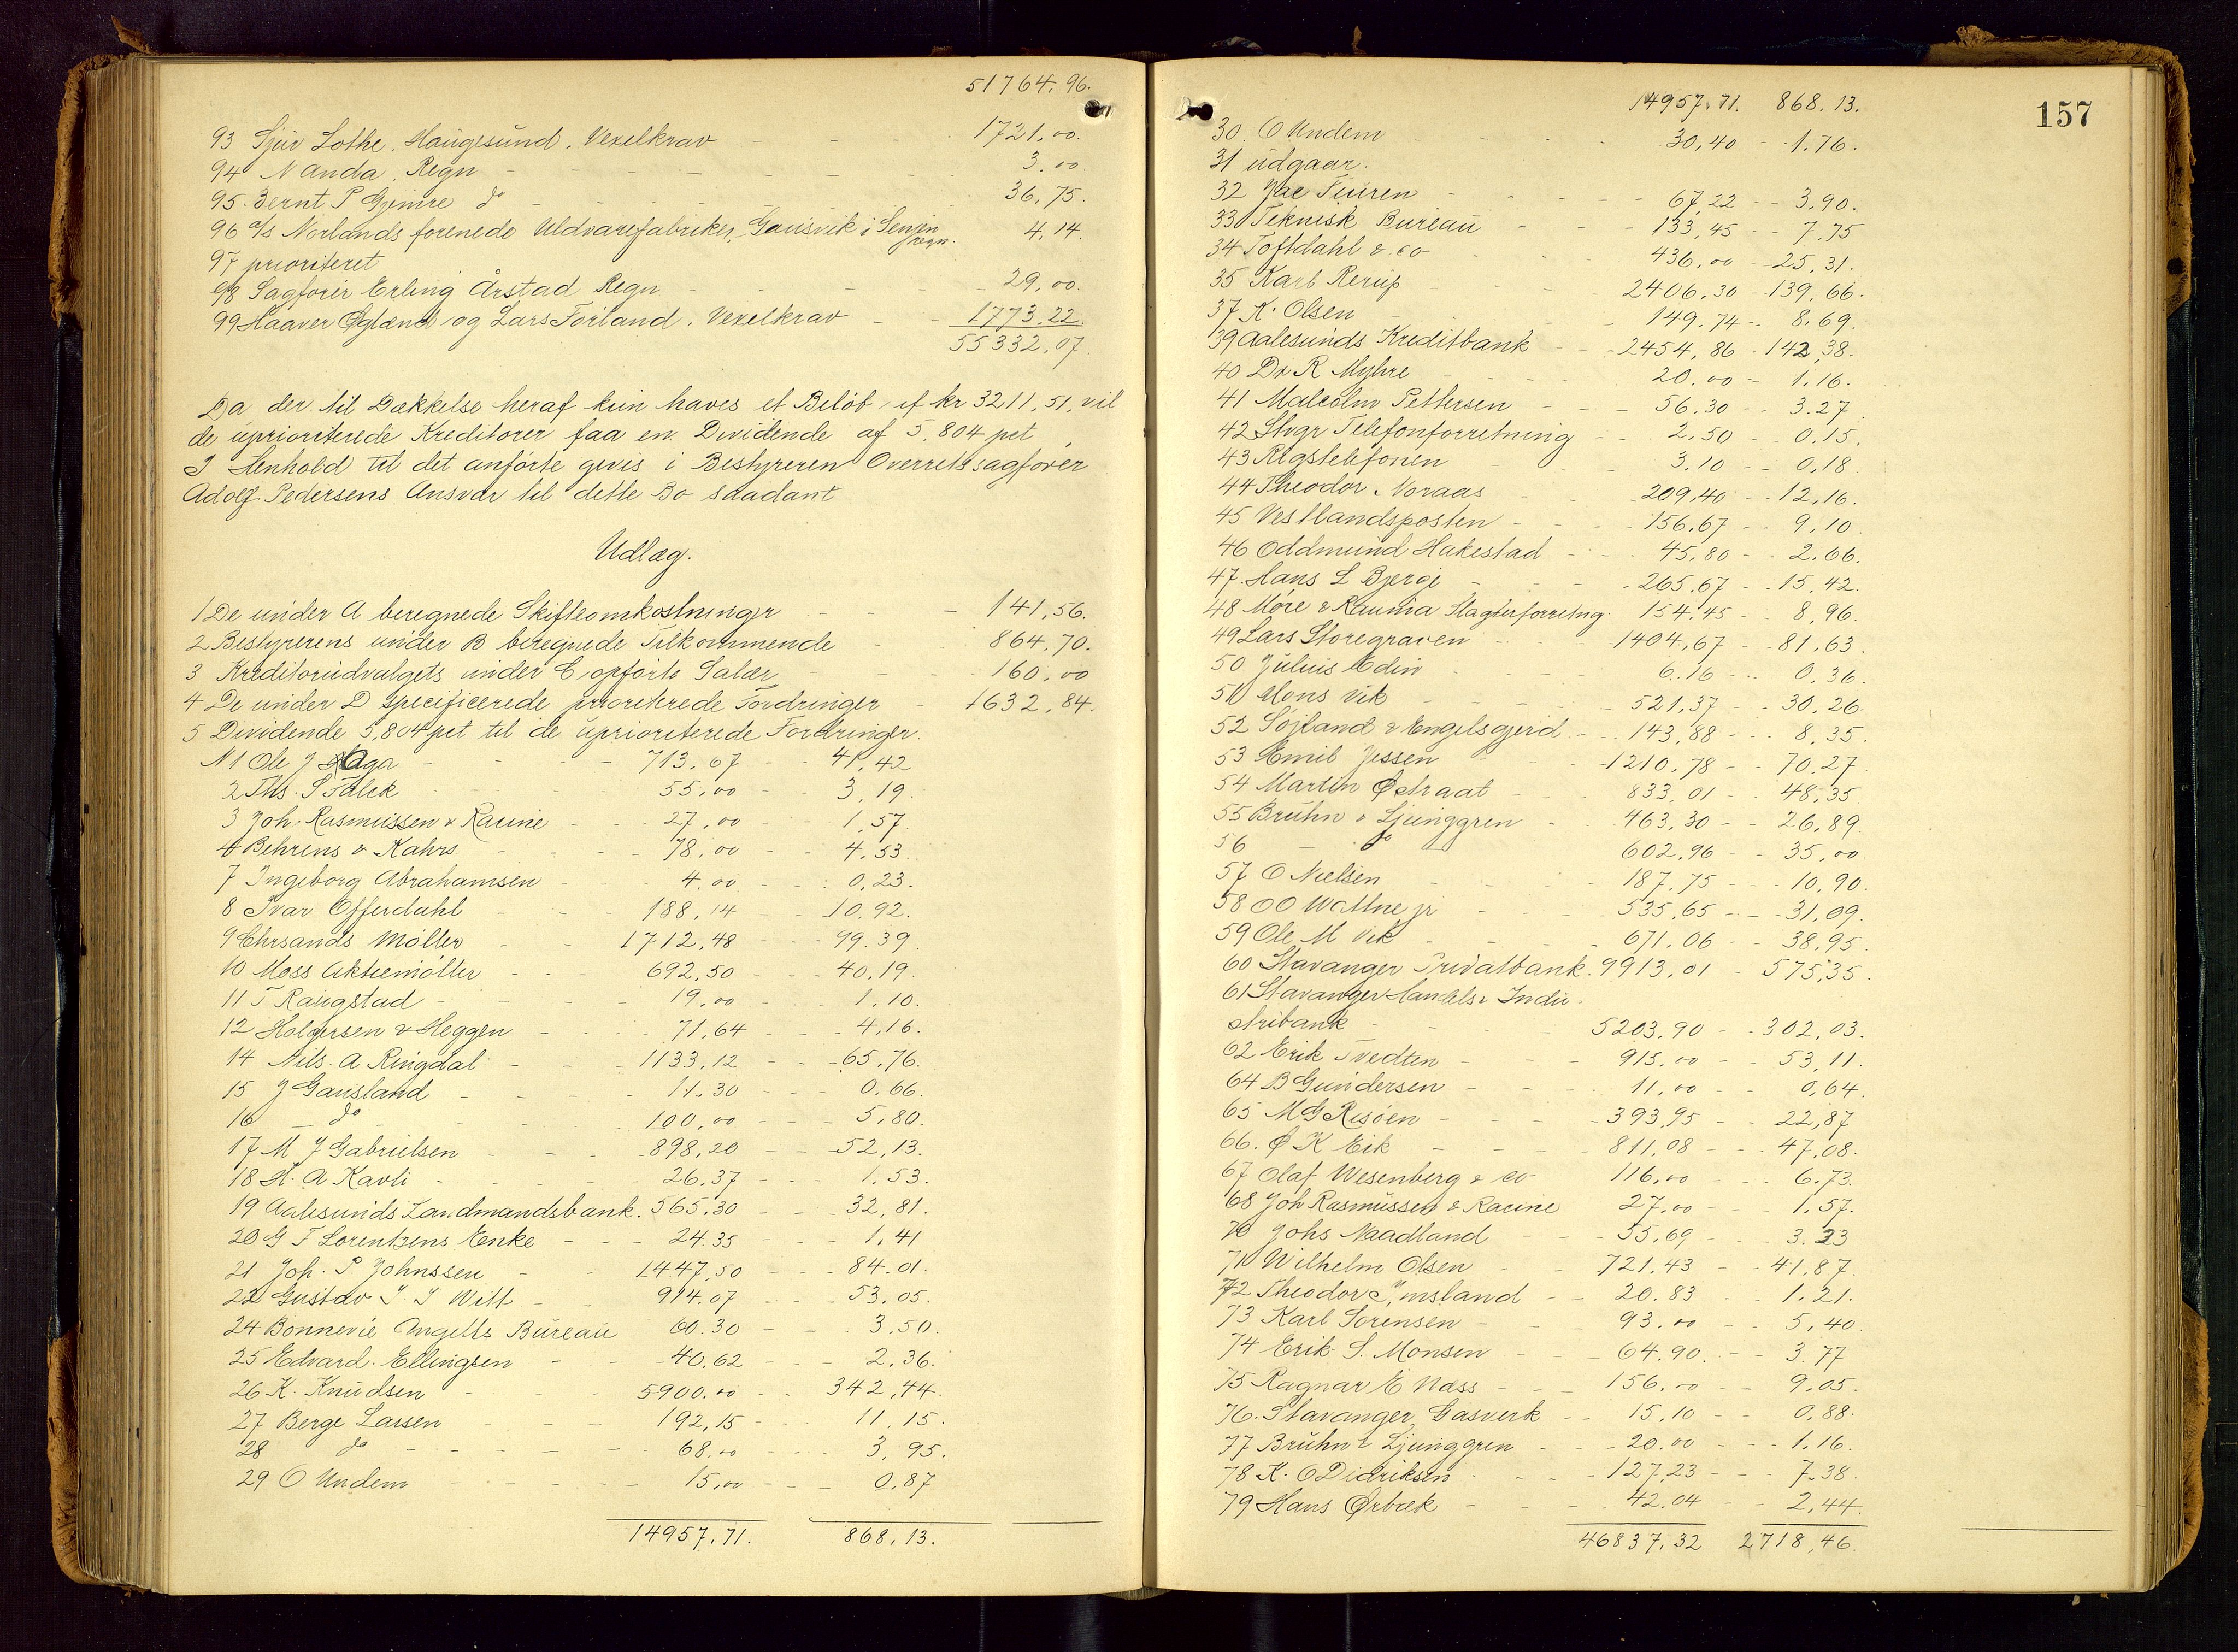 51764.96.
93 Sjur Lothe. Haugesund. Vexelkrav - - - 1721.00.
94 N Anda. Regn - - - 3.00.
95. Bernt P Gjimre do - - 36,75.
96 a/s Norlands forenede Uldvarefabriker, Gausvik i Senjen 4.14.
regn.
97 prioriteret
98 Sagforer Erling Årstad Regn - - - 29,00.
99 Haaver Øglænd og Lars Forland. Vexelkrav - - 1773.22.
55332,07.
Da der til Dækkelse heraf kun haves et Beløb af kr 3211,51, vil
de uprioriterede Kreditorer faa en Dividende af 5,804 pct
I Henhold til det anførte gives i Bestyreren Overretssagfører
Adolf Pedersens Ansvar til dette Bo saadant
Udlæg.
1 De under A beregnede Skifteomkostninger - - - 141,56.
2 Bestyrerens under B beregnede Tilkommende - - 864,70.
3 Kreditorudvalgets under C opførte Salær - - 160,00
4 De under D specificerede prioriterede Fordringer - 1632,84.
5 Dividende 5,804 pct til de uprioriterede Fordringer.
N 1 Ole J Haga - - 713,67 - - 41,42
2 Ths. S Falck - - 55,00 - - 3,19.
3 Joh. Rasmussen & Racine - - 27,00 - - 1,57.
4 Behrens & Kahrs - - 78,00 - - 4.53.
7 Ingeborg Abrahamsen - - 4.00 - - 0,23.
8 Ivar Offerdahl - - 188,14 - - 10.92.
9 Chrsands Møller - - 1712,48 - - 99.39
10 Moss Aktiemøller - - 692,50 - - 40,19.
11 T Raugstad - - 19,00 - - 1.10.
12 Holgersen & Heggen - - 71,64 - - 4,16.
14 Nils. A Ringdal - - 1133,12 - - 65.76.
15 J Gausland - - 11.30 - - 0.66.
16 - do - - 100,00 - - 5,80.
17 M J Gabrielsen - - 898,20 - - 52,13.
18 H. A Kavli - - 26.37 - - 1.53.
19 Aalesunds Landmandsbank. 565.30 - - 32,81.
20 G T Lorentzens Enke - - 24.35 - - 1,41
21 Joh. P Johnssen - - 1447,50 - - 84.01.
22 Gustav I. I Witt - - 914.07 - - 53.05.
24 Bonnevie Angells Bureau 60.30 - - 3.50.
25 Edvard. Ellingsen - - 40.62 - - 2.36.
26 K. Knudsen - - 5900.00 - - 342,44.
27 Berge Larsen - - 192,15 - - 11.15.
28 do - - 68,00 - - 3,95.
29 O Undem - - 15,00 - - 0,87
14957.71. 868.13.
157
14957.71. 868.13.
30. O Undem - - 30,40 - 1.76.
31 udgaar.
32 Jac Tuuren - - 67,22 - - 3.90.
33 Teknisk Bureau - - 133,45 - - 7.75
34 Toftdahl & Co - - 436,00 - 25,31.
35 Karl Rerup - - 2406,30 - 139,66.
37 K. Olsen - - 149.74 - - 8,69.
39 Aalesunds Kreditbank - - 2454,86 - 142,38.
40 Dr R Myhre - - 20.00 - 1.16.
41 Malcolm Pettersen - - 56.30 - - 3.27.
42 Stvgr Telefonforretning - - 2.50 - - 0.15.
43 Rigstelefonen - - 3.10 - - 0,18.
44 Theodor Noraas - - 209,40 - - 12,16.
45 Vestlandsposten - - 156.67 - - 9,10.
46 Oddmund Hakestad - - 45,80 - - 2,66.
47. Hans L Bjerge - - 265,67 - - 15,42.
48 Møre & Rauma Slagterforretng. 154.45 - - 8,96.
49 Lars Storegraven - - 1404,67 - - 81,63.
50 Julius Edin - - 6.16 - - 0.36.
51 Mons Vik - - 521,37 - - 30,26.
52 Sojland & Engelsgjerd - - 143,88 - - 8.35.
53 Emil Jessen - - 1210.78 - - 70.27.
54 Martin Østraat - - 833,01 - - 48.35
55 Bruhn & Ljunggren - - 463,30 - - 26.89
56 - do - 602,96 - - 35,00.
57 O Nielsen - - 187.75 - - 10,90.
58 O O Wathne jr - - 535,65 - - 31,09.
59 Ole M Vik - - 671.06 - - 38.95.
60 Stavanger Privatbank. 9913,01 - 575,35.
61 Stavanger Handels & Indu-
stribank - - 5203,90 - - 302,03.
62 Erik Tvedten - - 915,00 - - 53,11.
64 B Gundersen - - 11,00 - - 0,64.
65 M G Risøen - - 393,95 - - 22,87
66. Ø K Eik - - 811,08 - - 47,08.
67 Olaf Wesenberg & Co 116,00 - - 6.73.
68 Joh Rasmussen & Racine 27.00 - - 1.57.
70 Johs Naadland - - 55,69 - - 3.23
71 Wilhelm Olsen - - 721.43 - - 41,87.
72 Theodor Imsland - - 20.83 - - 1.21.
73 Karl Sorensen - - 93.00 - - 5,40.
74 Erik S. Monsen - - 64.90. - - 3.77
75 Ragnar E Næss - - 156.00 - - 9.05.
76. Stavanger Gasverk - - 15,10 - - 0,88.
77 Bruhn & Ljunggren - - 20.00 - - 1.16.
78 K. O Didriksen - - 127,23 - - 7.38.
79 Hans Ørbæk - - 42.04 - - 2,44.
46837.32 2718,46.